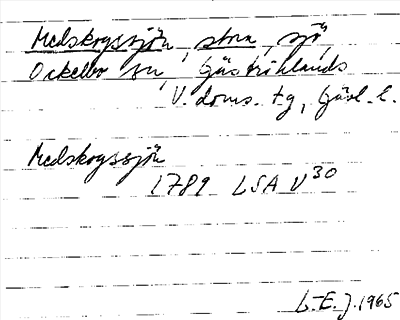 Medskogssjön, stora, sjö,
Ockelbo sn, Gästriklands
V. doms. tg, Gävl. l.
Medskogssjön
1789 LSA V30
L-E. J. 1965